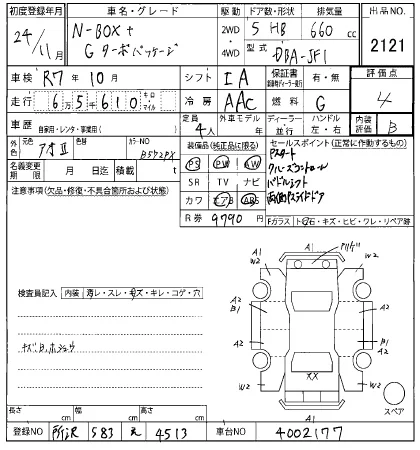 初度登録年月
車名・グレード
駆動
ドア数・形状
排気量
出品NO.
24/11月
N-BOX+
Gターボパッケージ
2WD
4WD
5 HB
660 cc
型式
DBA-JF1
2121
車検 R7年10月
シフト IA
保証書 有・無
評価点
走行 6万5千610 キロ マイル
冷房 AAC
燃料 G
4
車歴 自家用・レンタ・事業用( )
定員 4人
外車モデル 年
ディーラー 並行
ハンドル 左・右
内装評価 B
外色 元色 アオII
色替
カラーNO B572PX
装備品(純正品に限る)
セールスポイント(正常に作動するもの)
PS PW AW
Pスタート
名義変更期限 月 日迄
積載 t
SR TV ナビ
クルーズコントロール
注意事項(欠品・修復・不具合箇所および状態)
カワ エアB ABS
パドルシフト
両側Pスライドドア
R券 9790円
Fガラス トビ石・キズ・ヒビ・ワレ・リペア跡
A1
W2
A1
W2
検査員記入
内装 汚レ・スレ・キズ・キレ・コゲ・穴
A2
B1
A2
A2
B1
A2
XX
W2
W2
A1
スペア
長さ cm
幅 cm
高さ cm
登録NO 所沢 583 え 4513
車台NO 4002177